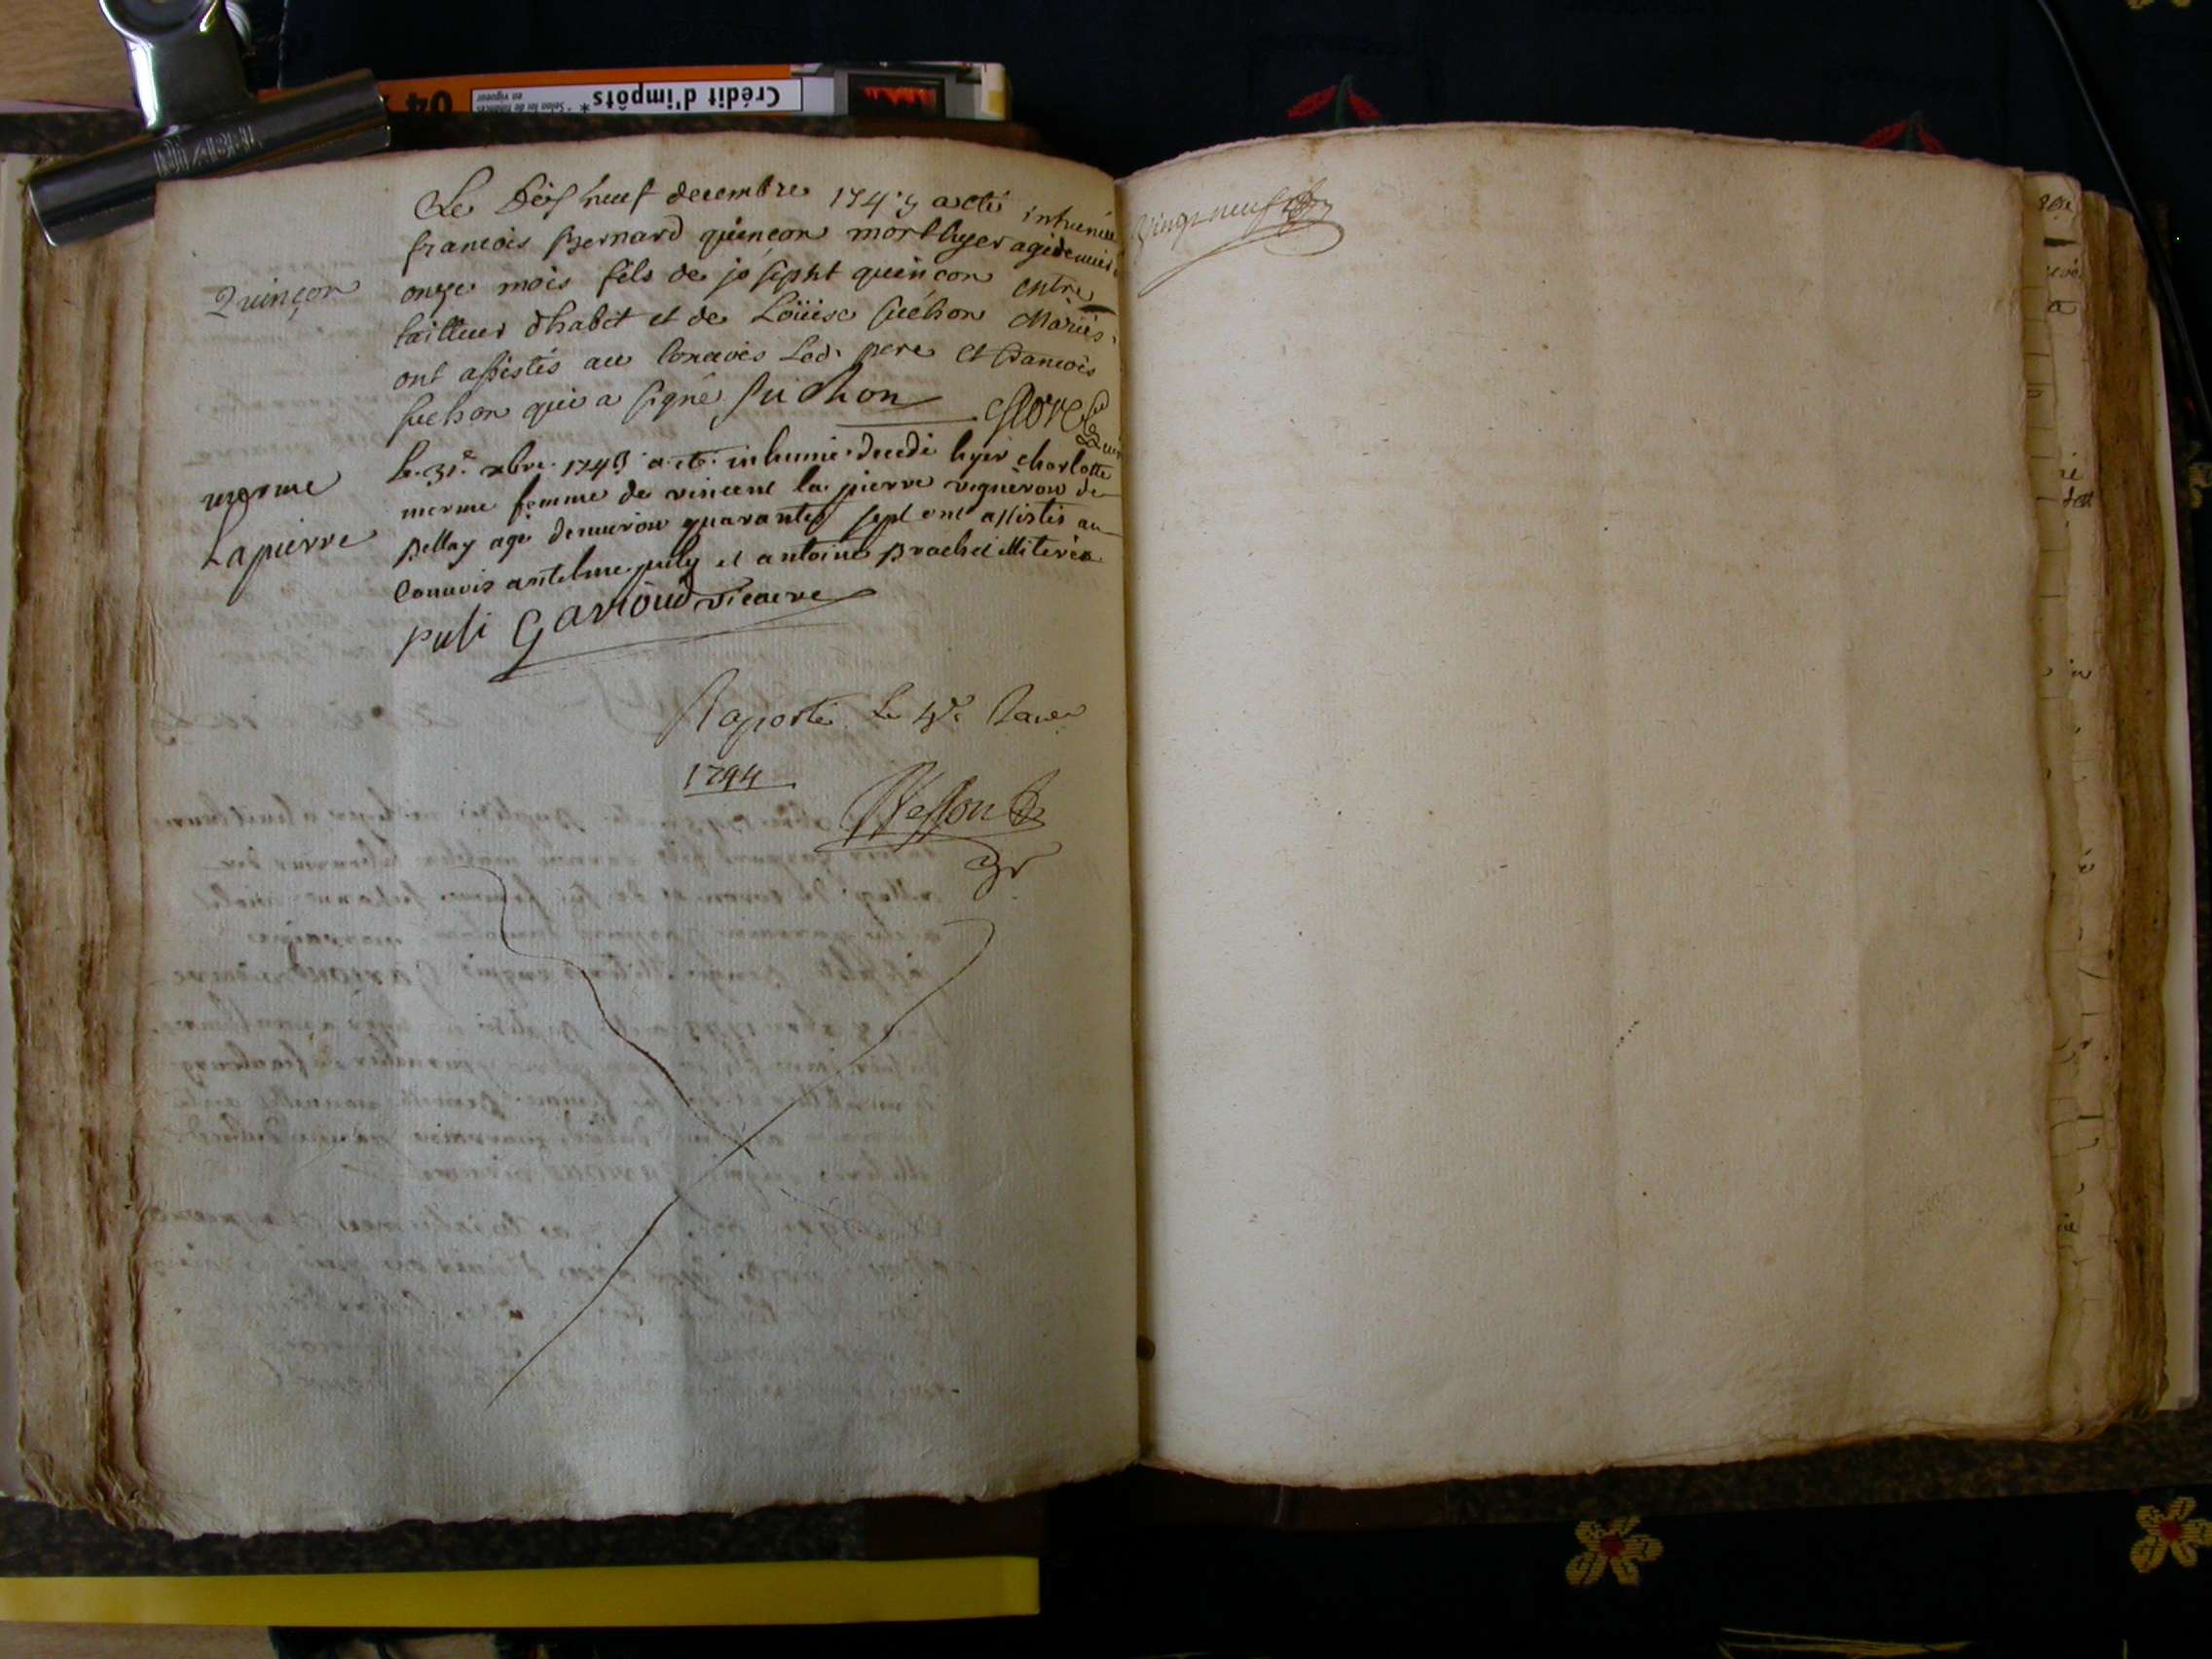 Crédit d'impôts*
Selon loi de finances
en vigueur
04
Le Dix neuf decembre 1743 a eté inhumé
francois Bernard quincon mort hyer agé denviron
onze mois fils de joseph quinçon
tailleur d'habit et de Loüise suchon Mariés
ont assistés au Convois Led. pere et francois
suchon qui a signé Suchon
Quinçon
le 31e xbre 1743 a eté inhumé decedé hyer charlotte
merme femme de vincent la pierre vigneron de
Bellay agé denviron quarante sept ont assistés au
Convois antelme puly et antoine Brachet illiterés
merme
Lapierre
puli Garioud vicaire
Raporté Le
1744
Vingt neuf